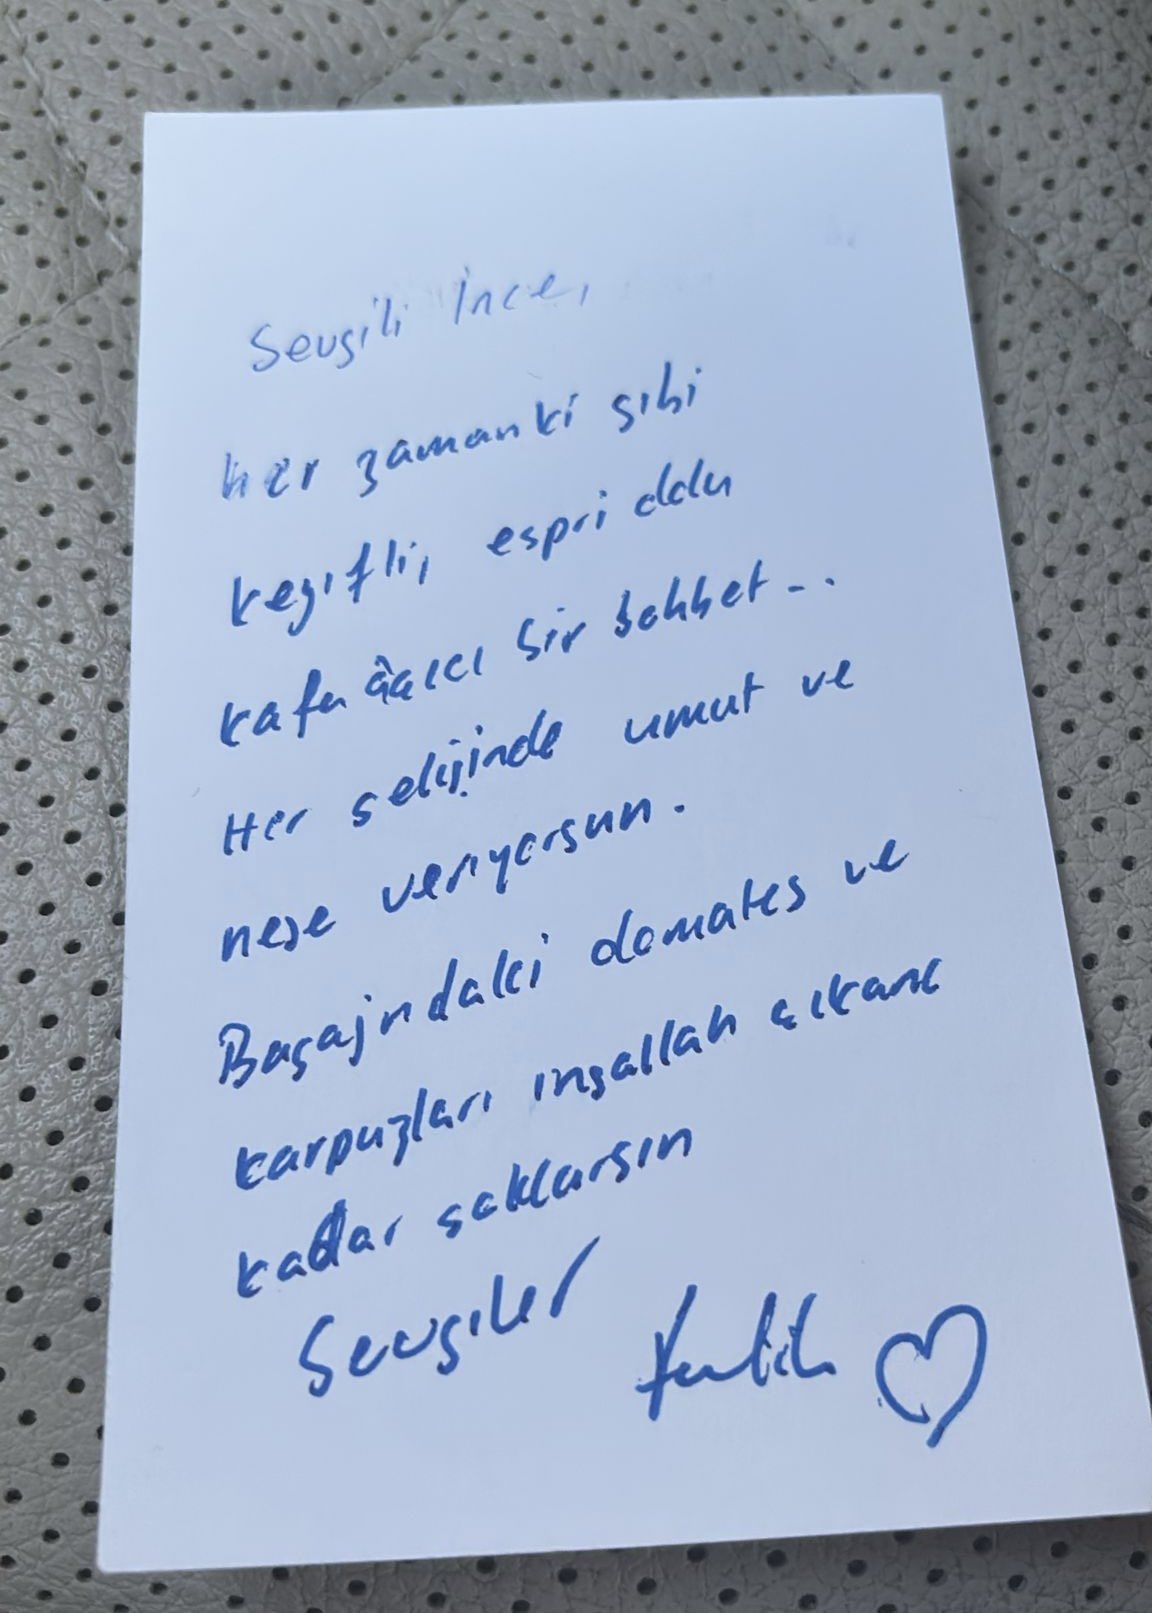 Sevgili İnce,
her zamanki gibi
keyifli, espri dolu
kafa açıcı bir sohbet...
Her gelişinde umut ve
neşe veriyorsun.
Bagajındaki domates ve
karpuzları inşallah çıkana
kadar saklarsın
Sevgiler Fatih